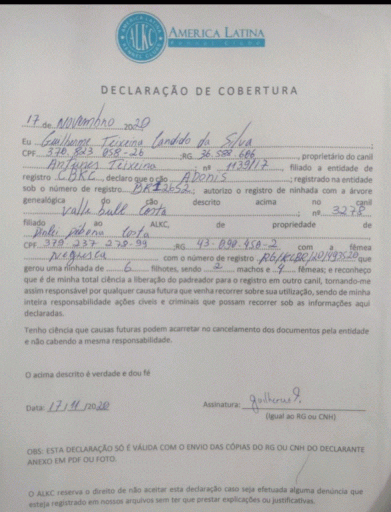 AMERICA LATINA
KENNEL CLUBE
ALKC
DECLARAÇÃO DE COBERTURA
17 de NOVEMBRO 2020
Eu Guilherme Teixeira Candido da Silva
CPF 370.823 058-26 RG 36.588 686 , proprietário do canil
Antunes Teixeira nº 1139/17 , filiado a entidade
registro CBKC , declaro que o cão ADONIS ; registrado na entidade
sob o número de registro BR12652 , autorizo o registro de ninhada com a árvore
genealógica do cão descrito acima no canil
Valle Bull Costa nº 3278
filiado ao ALKC, de propriedade de
Costa
CPF 379 237 278-99 RG 43-090-450-2 com a fêmea
Negresca com o número de registro que
gerou uma ninhada de 6 filhotes, sendo 2 machos e 4 fêmeas; e reconheço
que é de minha total ciência a liberação do padreador para o registro em outro canil, tornando-me
assim responsável por qualquer causa futura que venha recorrer sobre sua utilização, sendo de minha
inteira responsabilidade ações cíveis e criminais que possam recorrer sob as informações aqui
declaradas.
Tenho ciência que causas futuras podem acarretar no cancelamento dos documentos pela entidade
e não cabendo a mesma responsabilidade.
O acima descrito é verdade e dou fé
Data: 17/11/2020 Assinatura: Guilherme
(Igual ao RG ou CNH)
OBS: ESTA DECLARAÇÃO SÓ É VÁLIDA COM O ENVIO DAS CÓPIAS DO RG OU CNH DO DECLARANTE
ANEXO EM PDF OU FOTO.
O ALKC reserva o direito de não aceitar esta declaração caso seja efetuada alguma denúncia que
esteja registrado em nossos arquivos sem ter que prestar explicações ou justificativas.